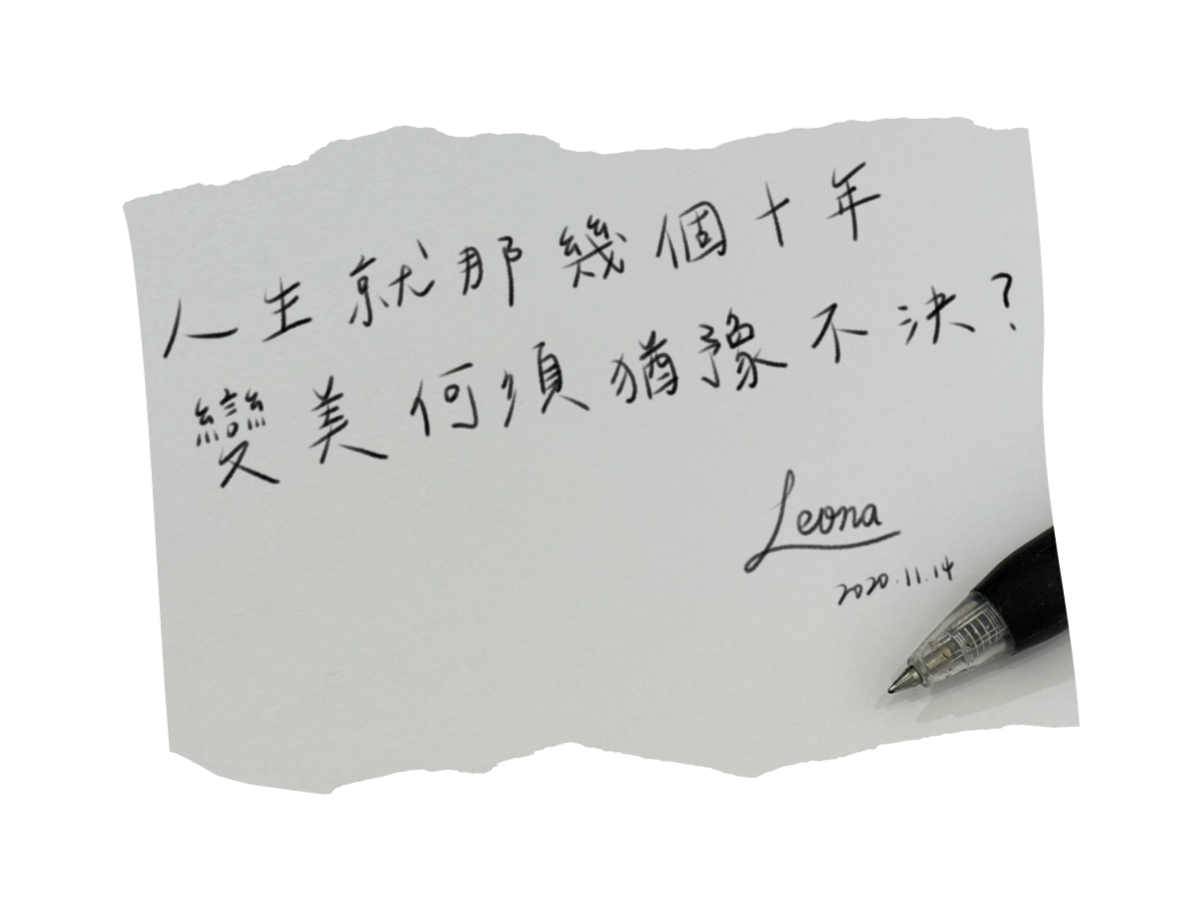 人生就那幾個十年
變美何須猶豫不決?
Leona
2020.11.14